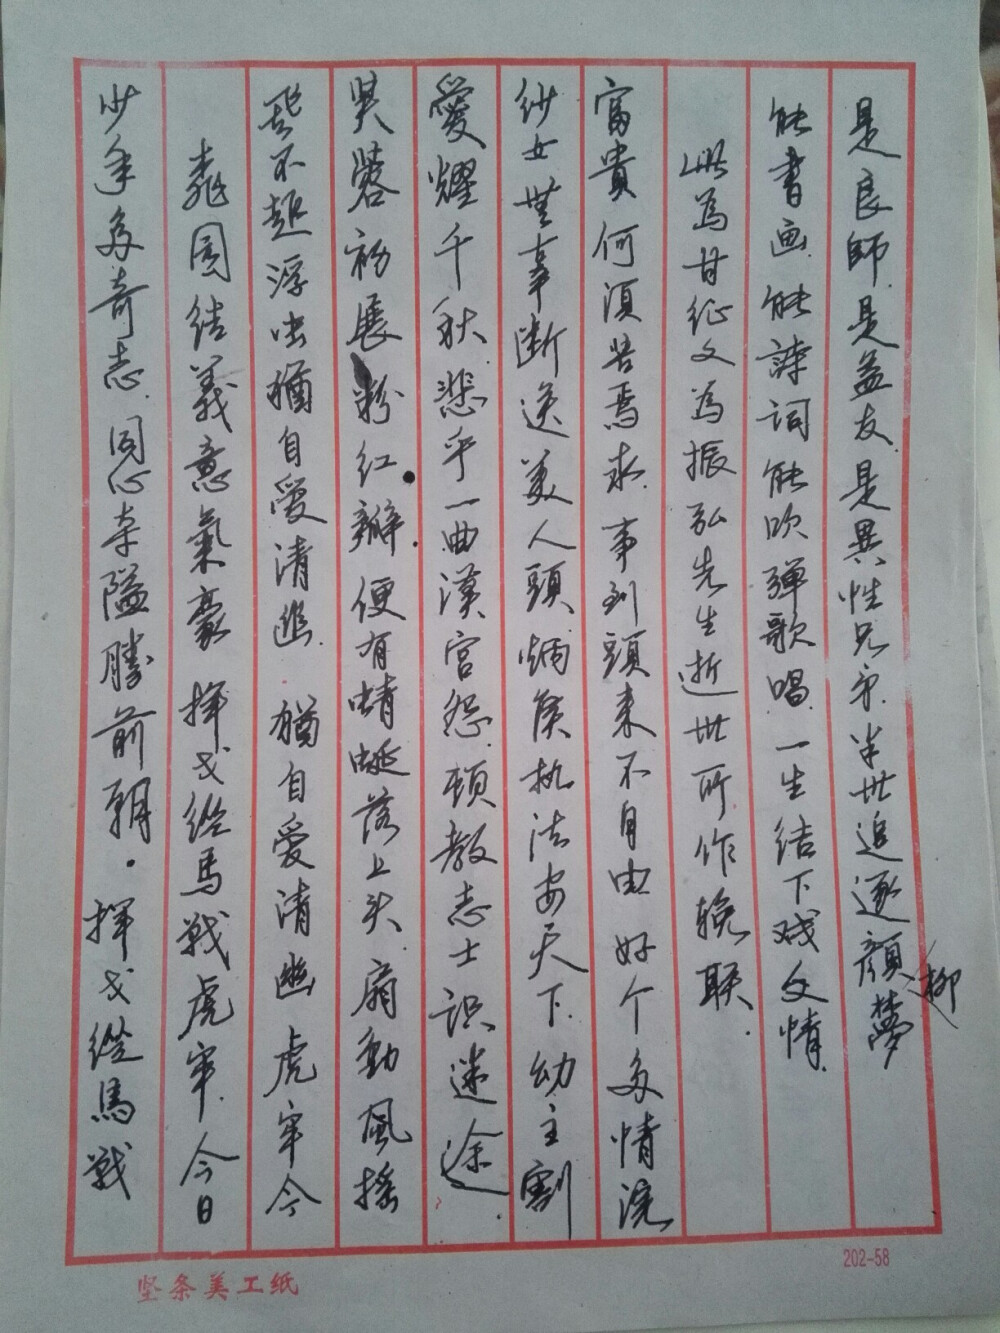 是良師.是益友.是異性兄弟.半世追逐顏柳夢
能書画.能詩詞.能吹彈歌唱.一生结下戏文情.
此為甘纪文為振弘先生逝世所作輓联.
富貴何須苦焉求.事到頭来不自由.好个多情浣
纱女.世事断送美人頭.炳侯执法安天下.幼主割
愛耀千秋.悲乎一曲漢宫怨.頓教志士识迷途.
芙蓉初展粉红瓣.便有蜻蜓落上头.扇動風摇
不起浮虫.猶自爱清幽.猶自爱清幽.虎牢今
桃園结義意氣豪.揮戈纵馬戰虎牢.今日
少年多奇志.同心夺隘勝前朝.揮戈縱馬戰
202-58
坚条美工纸